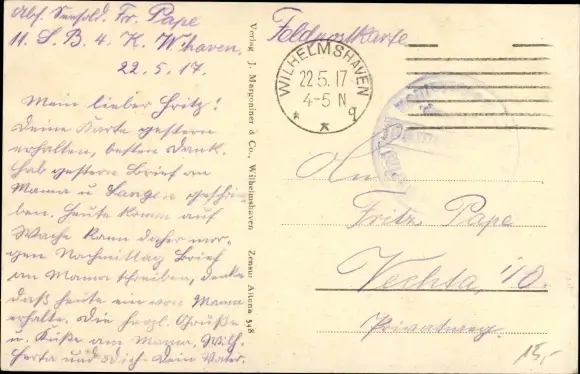 Abs. Seesold. Fr. Pape
11. S. B. 4. K. W'haven.
22.5.17.
Mein lieber Fritz!
Deine Karte gestern
erhalten, besten Dank.
Hab gestern Brief an
Mama u. Langen geschrie
ben. Heute komm auf
Wache kann daher mor-
gen Nachmittag Brief
an Mama schreiben, denke
daß heute ein von Mama
erhalte. Die herzl. Grüße
u. Küße an Mama, Wilh.
Herta und Dich Dein Vater.
Verlag J. Margoniner & Co., Wilhelmshaven Zensur Altona 548
Feldpostkarte
WILHELMSHAVEN
22.5.17
4-5 N
* * q
An
Fritz Pape
Vechta i/O.
15,-